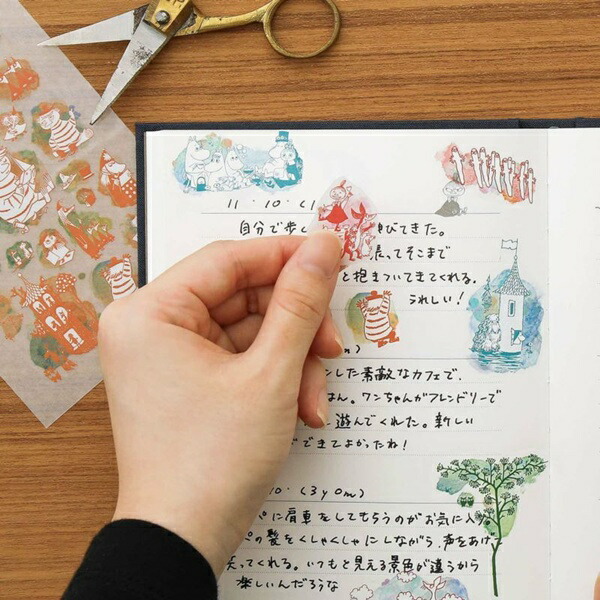 11・10・(1
自分で歩 びてきた。
張ってそこまで
と抱きついてきてくれる。
うれしい！
m)
した素敵なカフェで、
はん。ワンちゃんがフレンドリーで
遊んでくれた。新しい
できてよかったね！
10・(3y0m)
パに肩車をしてもらうのがお気に入り。
パの髪をくしゃくしゃにしながら、声をあげ
笑ってくれる。いつもと見える景色が違うから
楽しいんだろうな